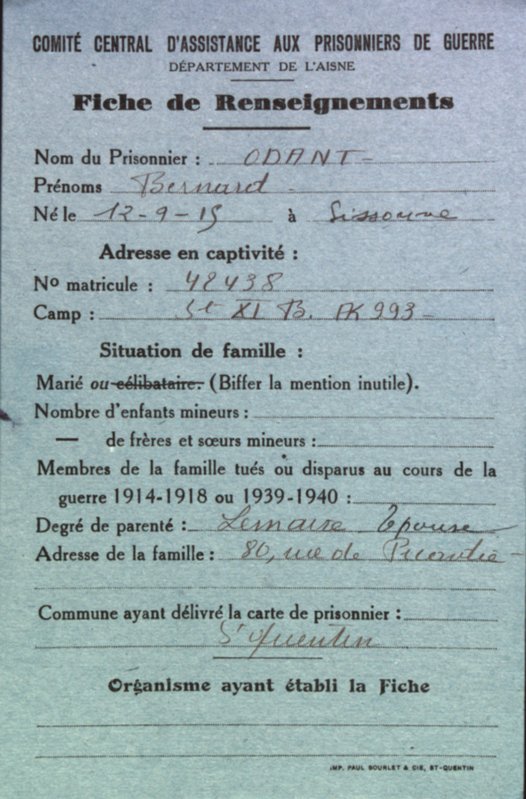 COMITÉ CENTRAL D'ASSISTANCE AUX PRISONNIERS DE GUERRE
DÉPARTEMENT DE L'AISNE
Fiche de Renseignements
Nom du Prisonnier : ODANT
Prénoms Bernard
Né le 12-9-15 à Sissonne
Adresse en captivité :
No matricule : 42438
Camp : St XI B. AK 993
Situation de famille :
Marié ou célibataire. (Biffer la mention inutile).
Nombre d'enfants mineurs :
— de frères et sœurs mineurs :
Membres de la famille tués ou disparus au cours de la
guerre 1914-1918 ou 1939-1940 :
Degré de parenté : Lemaire Epouse
Adresse de la famille : 80, rue de Picardie
Commune ayant délivré la carte de prisonnier :
St Quentin
Organisme ayant établi la Fiche
IMP. PAUL BOURLET & CIE, ST-QUENTIN